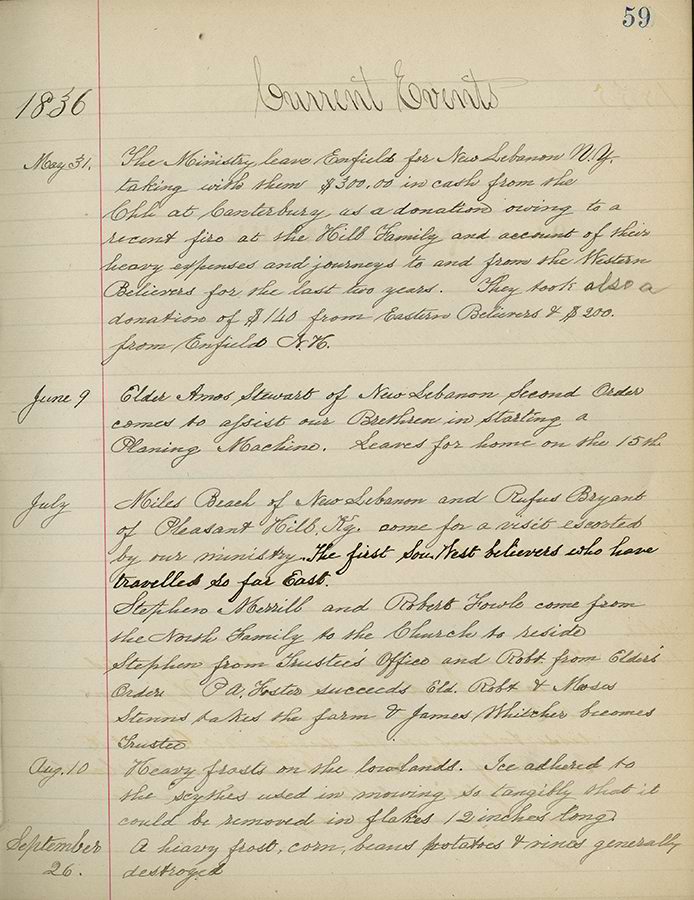 59
Current Events
1836
May 31. The Ministry leave Enfield for New Lebanon N.Y.
taking with them $300.00 in cash from the
Chh at Canterbury as a donation owing to a
recent fire at the Hill Family and account of their
heavy expenses and journeys to and from the Western
Believers for the last two years. They took also a
donation of $140 from Eastern Believers & $200.
from Enfield N.H.
June 9 Elder Amos Stewart of New Lebanon Second Order
comes to assist our Brethren in starting a
Planing Machine. Leaves for home on the 15th
July Miles Beach of New Lebanon and Rufus Bryant
of Pleasant Hill, Ky. come for a visit escorted
by our ministry. The first Sou. West believers who have
travelled so far East.
Stephen Merrill and Robert Fowle come from
the North Family to the Church to reside
Stephen from Trustee's Office and Robt. from Elder's
Order. P A, Foster succeeds Eld. Robt & Moses
takes the farm & James Whitcher becomes
Trustee
Aug. 10 Heavy frosts on the lowlands. Ice adhered to
the scythes used in mowing so tangibly that it
could be removed in flakes 12 inches long.
September A hiavy frost, corn, beans potatoes & vines generally
26. destroyed